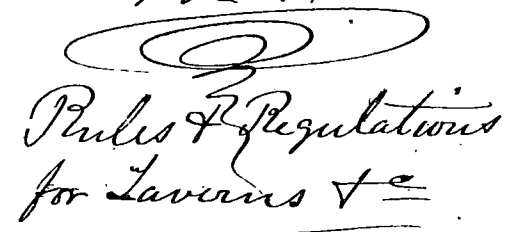 Rules & Regulations
for Taverns &c